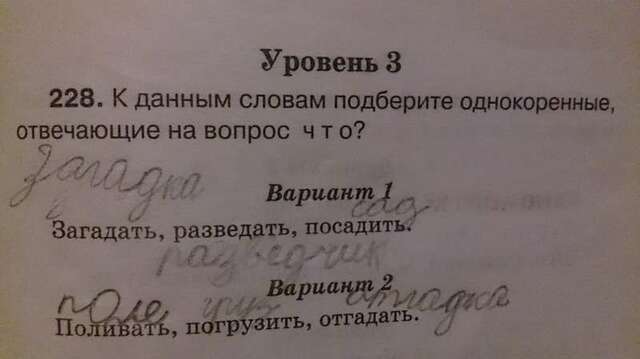 Уровень 3
228. К данным словам подберите однокоренные,
отвечающие на вопрос ч т о?
Загадка
Вариант 1
сад
Загадать, разведать, посадить.
разведчик
Вариант 2
поле груз отгадка
Поливать, погрузить, отгадать.